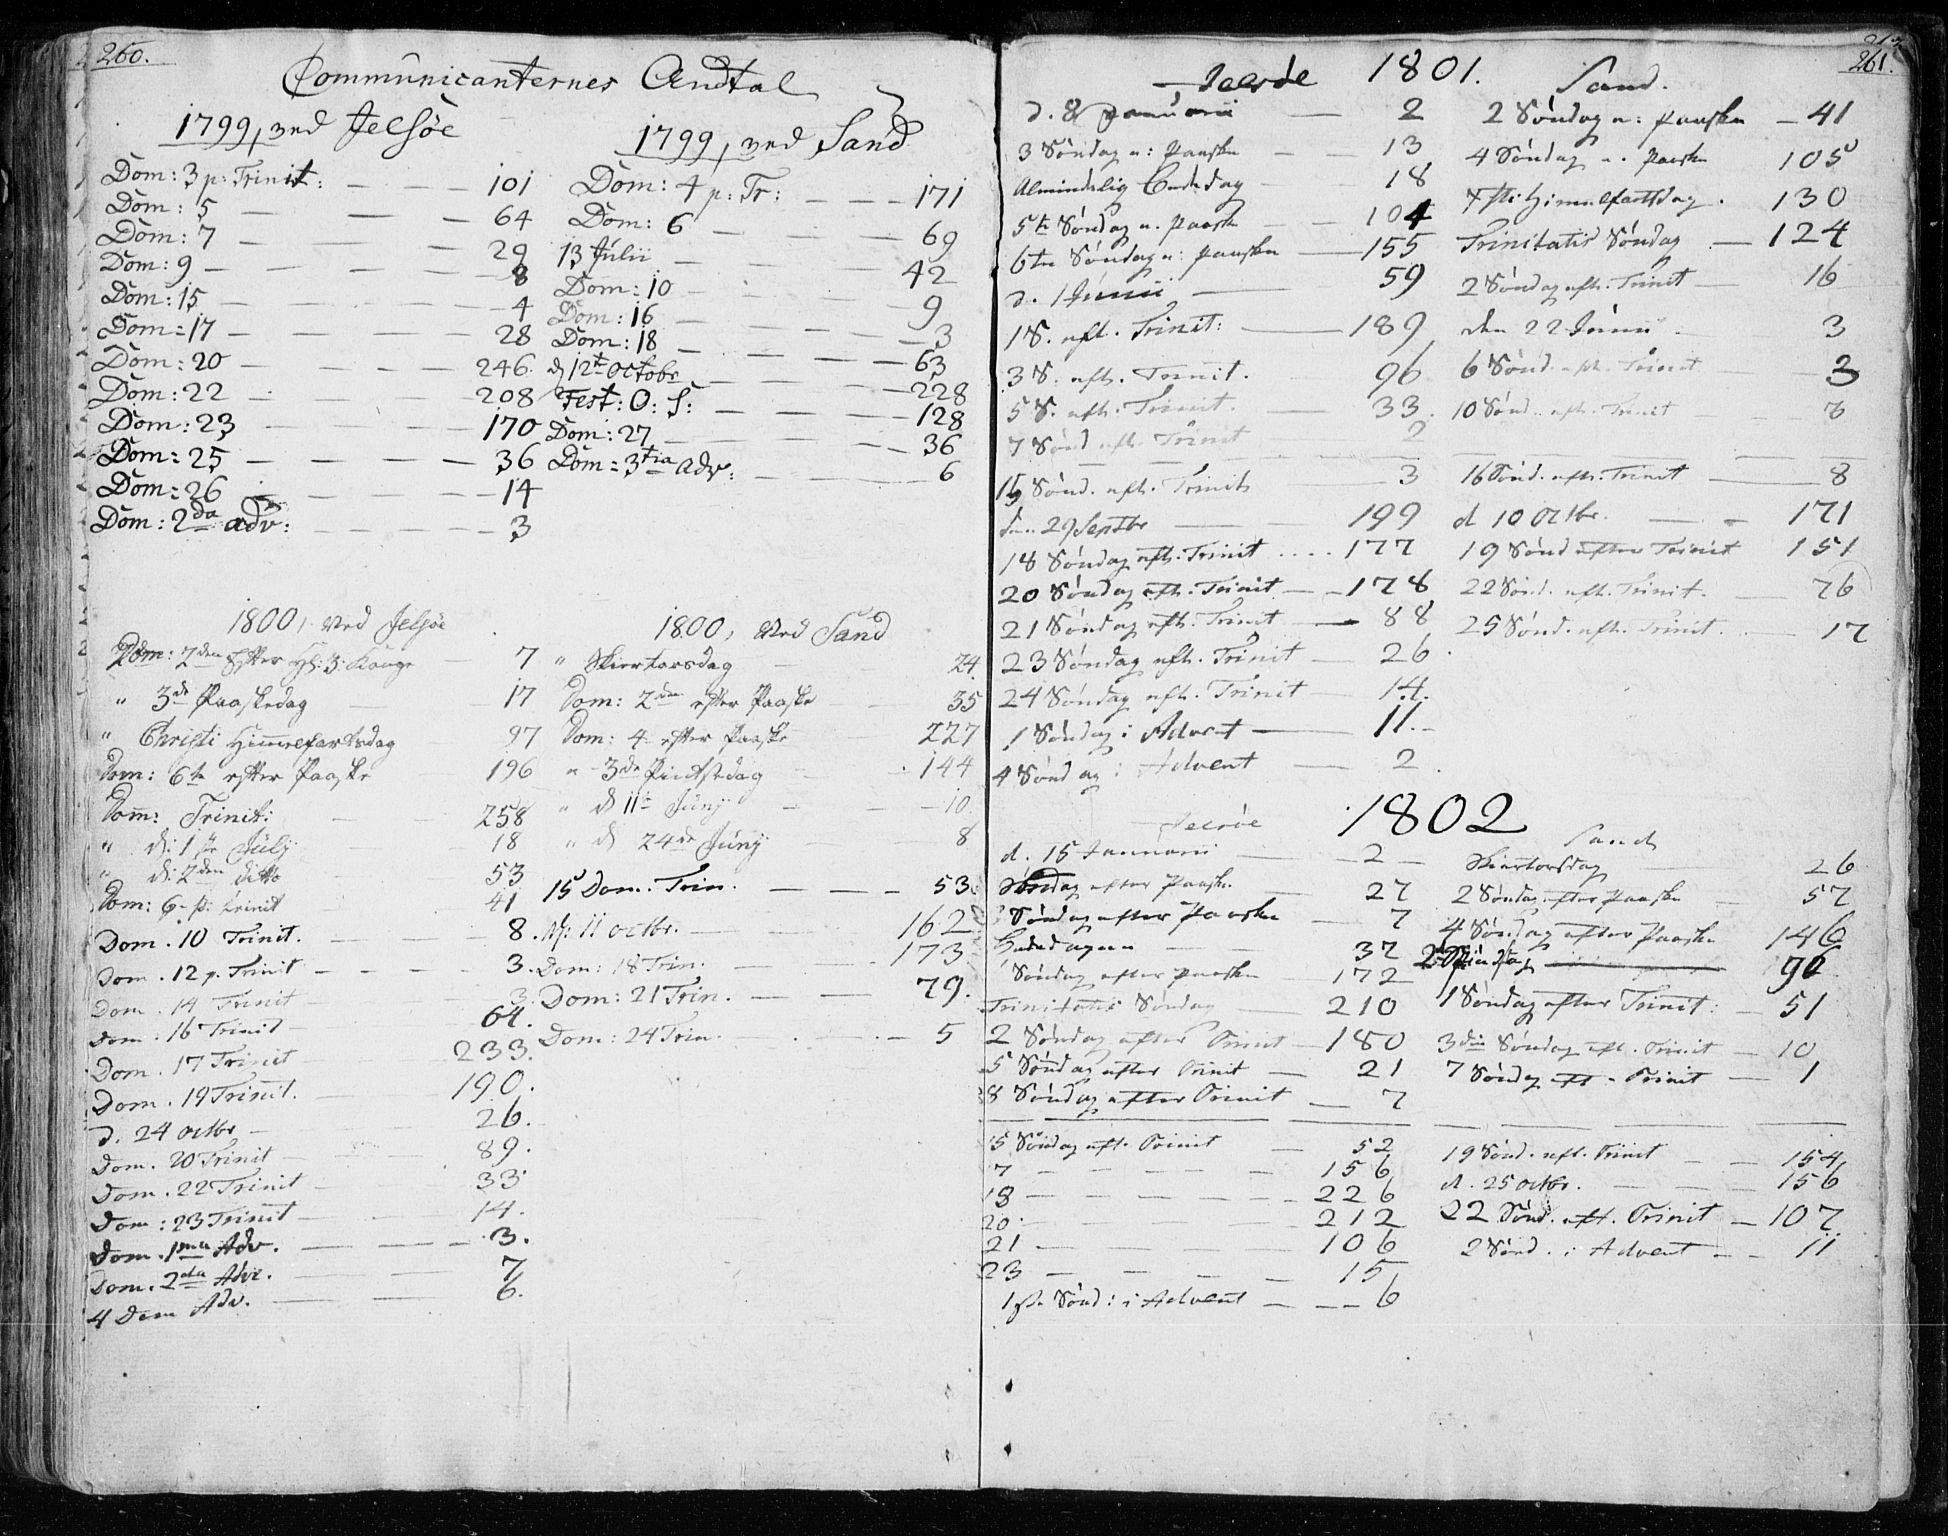 260.
Communicanternes Andtal
1799, ved Jelsøe
Dom: 3 p: Trinit: — — 101
Dom: 5 — — — 64
Dom: 7 — — — 29
Dom: 9 — — — 8
Dom: 15 — — — 4
Dom: 17 — — — 28
Dom: 20 — — — 246.
Dom: 22 — — — 208
Dom: 23 — — — 170
Dom: 25 — — — 36
Dom: 26 — — — 14
Dom: 2da adv: — — — 3
1799, ved Sand
Dom: 4 p: Tr: — — — 171
Dom: 6 — — — 69
13 Julii — — — 42
Dom: 10 — — — 9
Dom: 16 — — — 3
Dom: 18 — — — 63
d 12te Octobr — — — 228
Fest: O: S: — — — 128
Dom: 27 — — — 36
Dom: 3tia Adv: — — — 6
1800, ved Jelsøe
Dom: 2den Efter Hl: 3: Konge — 7
" 3de Paaskedag — 17
" Christi Himmelfartsdag 97
Dom: 6te efter Paaske 196
Dom: Trinit: 258
" d: 1ste July 18
" d: 2den ditto 53
Dom: 6 p: trinit 41
Dom. 10 Trinit. — — — 8.
Dom. 12 p. Trinit — — — 3.
Dom. 14 Trinit — 3.
Dom. 16 Trinit — 64.
Dom. 17 Trinit — 233.
Dom. 19 Trinit. — 190.
d. 24 octbr — 26.
Dom. 20 Trinit — 89.
Dom. 22 Trinit — 33
Dom: 23 Trinit — 14.
Dom. 1ma Adv. — — 3.
Dom. 2da Adv. — — 7
4 Dom Adv. — — 6.
1800, ved Sand
" Skiertorsdag — 24.
Dom: 2den efter Paaske — 35
Dom: 4 efter Paaske 227
" 3de Pintsedag — 144
" d 11te Junij — 10
" d 24de Junij — 8
15 Dom. Trin. — — — 53.
d: 11 octbr. — — 162
Dom: 18 Trin. — — 173
Dom: 21 Trin. — — 79.
Dom: 24 Trin. — 5
261.
Jelsøe 1801. Sand.
d. 8 Januarii 2
3 Søndag e: Paaske — — 13
Almindelig Bededag 18
5te Søndag e. Paaske — 104
6te Søndag e: Paaske — 155
d. 1 Junii — 59
1 S. eft. Trinit: — 189
3 S. eft. Trinit. 96
5 S. eft: Trinit. — 33.
7 Sønd eft. Trinit 2
15 Sønd. eft. Trinit — 3
den 29 Septbr — — 199
18 Søndag eft. Trinit .... 177
20 Søndag eft. Trinit — — 178
21 Søndag eft. Trinit — 88
23 Søndag eft. Trinit — 26.
24 Søndag eft. Trinit — 14.
1 Søndag i Advent — 11.
4 Søndag i Advent — 2.
2 Søndag e: Paaske — 41
4 Søndag e. Paaske 105
Christi Himmelfartsdag. 130
Trinitatis Søndag — 124
2 Søndag eft. Trinit — 16
den 22 Junii — 3
6 Sønd. eft. Trinit — 3
10 Sønd. eft. Trinit 8
16 Sønd. eft. Trinit — 8
d 10 Octbr. — 171
19 Sønd efter Trinit 151
22 Sønd. eft. Trinit. — 76
25 Sønd. eft. Trinit. — 17
Jelsøe 1802 Sand
d. 15 Januarii — 2 —
Søndag efter Paaske 27
Søndag efter Paaske — 7
Bededagen — 37
Søndag efter Paaske 172
Trinitatis Søndag — 210
2 Søndag efter Trinit — 180
5 Søndag efter Trinit — 21
8 Søndag efter Trinit — 7
15 Søndag eft. Trinit — 52
7 — — — — 156
18 — — — — 226
20 — — — — 212
21 — — — — 106
23 — — — — 15
1ste Sønd: i Advent — — 6
Skiertorsdag — 26
2 Søndag efter Paaske — 57
4 Søndag efter Paaske 146
96
1 Søndag efter Trinit: — 51
3die Søndag eft. Trinit — 10
7 Søndag eft. Trinit — 1
19 Sønd. eft. Trinit — — 154
d. 25 octbr. — — — 156
22 Sønd. eft. Trinit — 107.
2 Sønd. i Advent — — 11